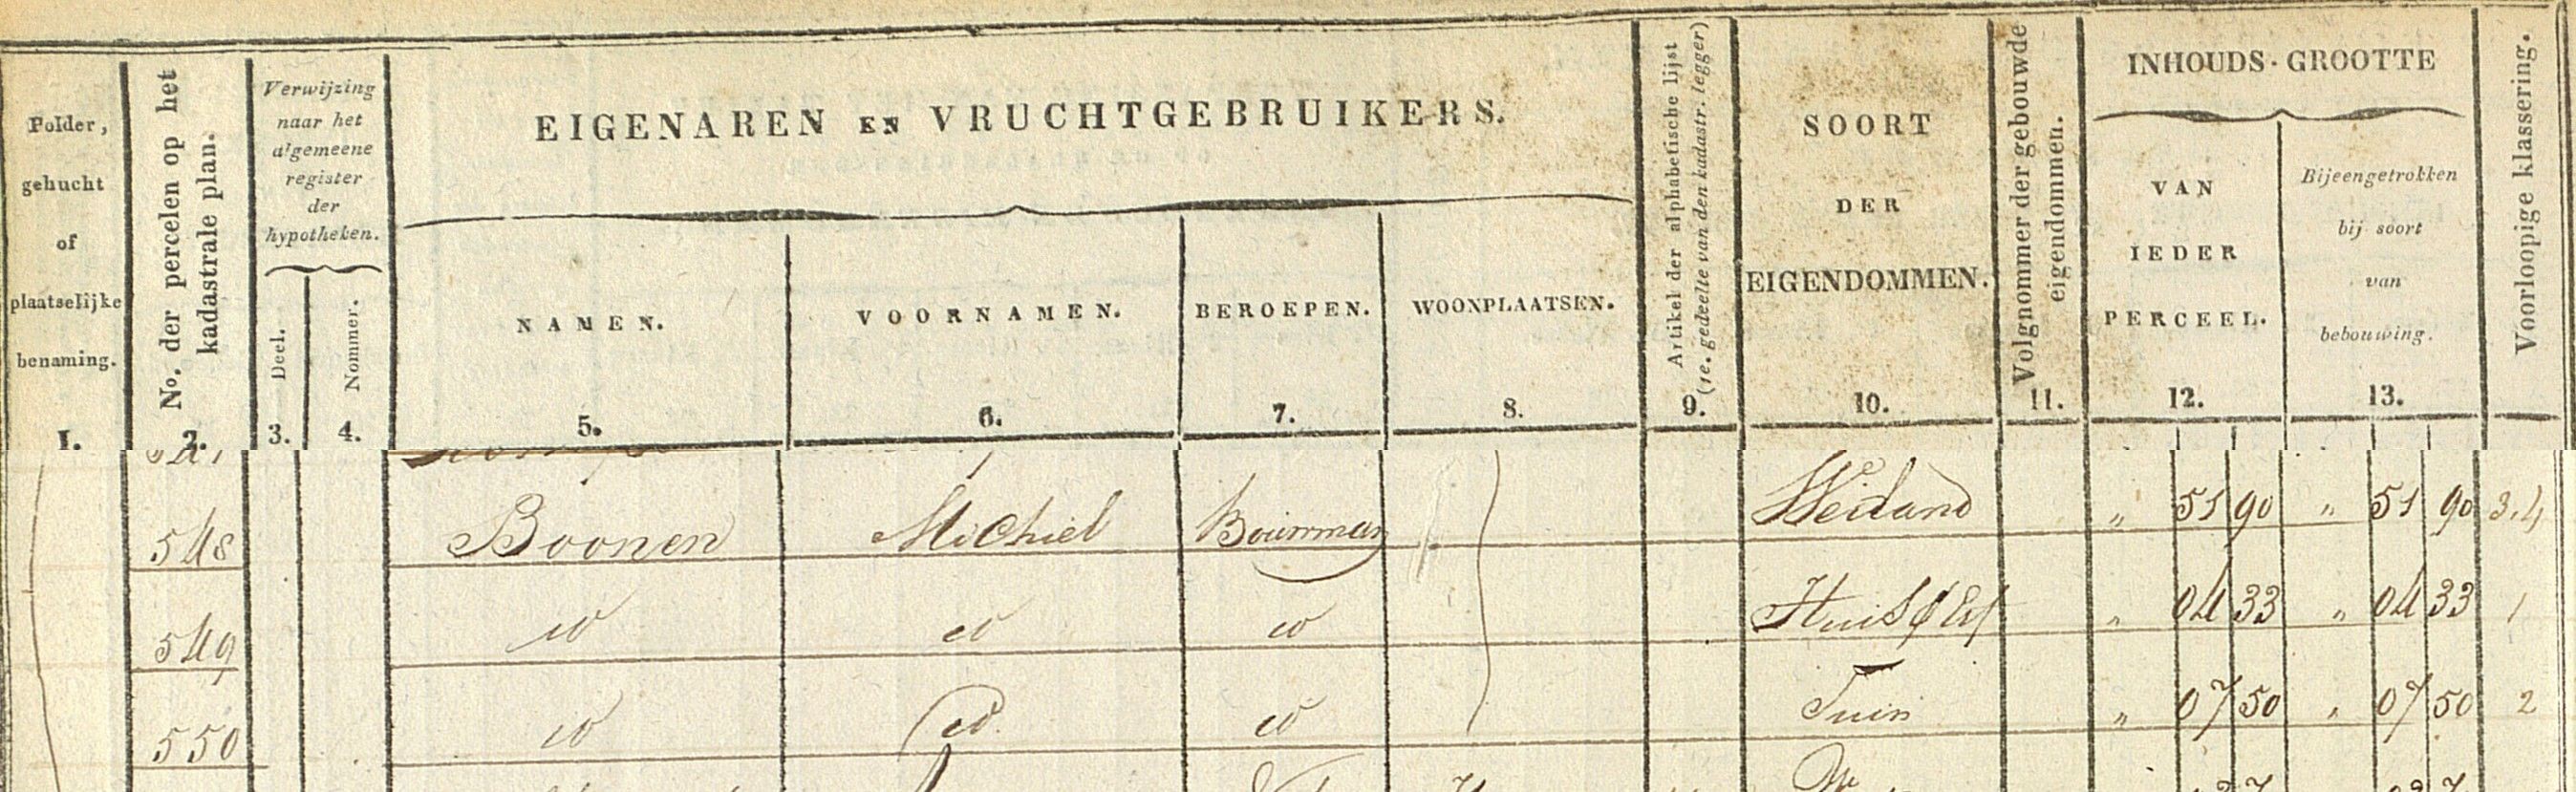 Polder,
gehucht
of
plaatselijke
benaming.
1.
No. der percelen op het
kadastrale plan.
2.
Verwijzing
naar het
algemeene
register
der
hypotheken.
Deel.
3.
Nommer.
4.
EIGENAREN EN VRUCHTGEBRUIKERS.
NAMEN.
5.
VOORNAMEN.
6.
BEROEPEN.
7.
WOONPLAATSEN.
8.
Artikel der alphabetische lijst
(1e. gedeelte van den kadastr. legger)
9.
SOORT
DER
EIGENDOMMEN.
10.
Volgnommer der gebouwde
eigendommen.
11.
INHOUDS-GROOTTE
VAN
IEDER
PERCEEL.
12.
Bijeengetrokken
bij soort
van
bebouwing.
13.
Voorloopige klassering.
548 Boonen Michiel Bouwman Weiland " 51 90 " 51 90 3.4
549 id id id Huis & Erf " 04 33 " 04 33 1
550 id id id Tuin " 07 50 " 07 50 2